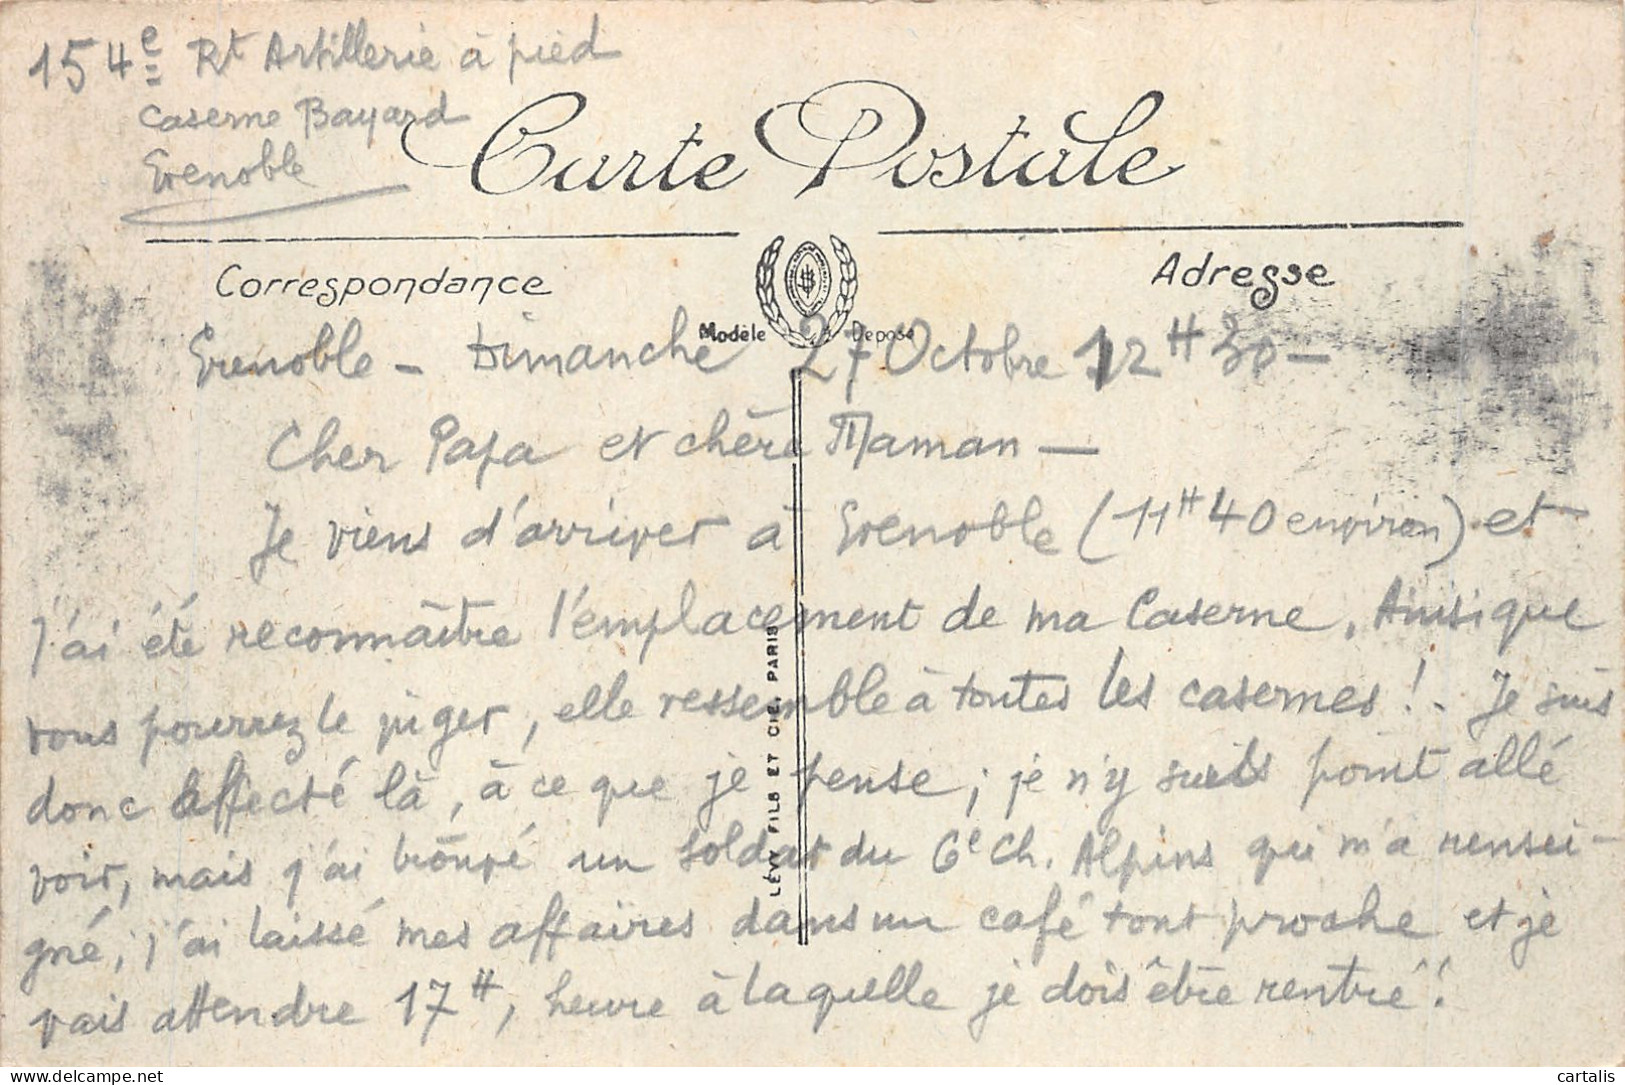 154e Rt Artillerie à pied
Caserne Bayard
Grenoble
Carte Postale
Correspondance
Adresse
Modèle Déposé
Grenoble - Dimanche 27 Octobre 12H30 -
Cher Papa et chère Maman -
Je viens d'arriver à Grenoble (11H40 environ) et
j'ai été reconnaître l'emplacement de ma Caserne. Ainsi que
vous pourrez le juger, elle ressemble à toutes les casernes! . Je suis
donc affecté là, à ce que je pense; je n'y suis point allé
voir, mais j'ai trouvé un soldat du 6e Ch. Alpins qui m'a rensei-
gné; j'ai laissé mes affaires dans un café tout proche et je
vais attendre 17H, heure à laquelle je dois être rentré!
LÉVY FILS ET CIE, PARIS
cartalis